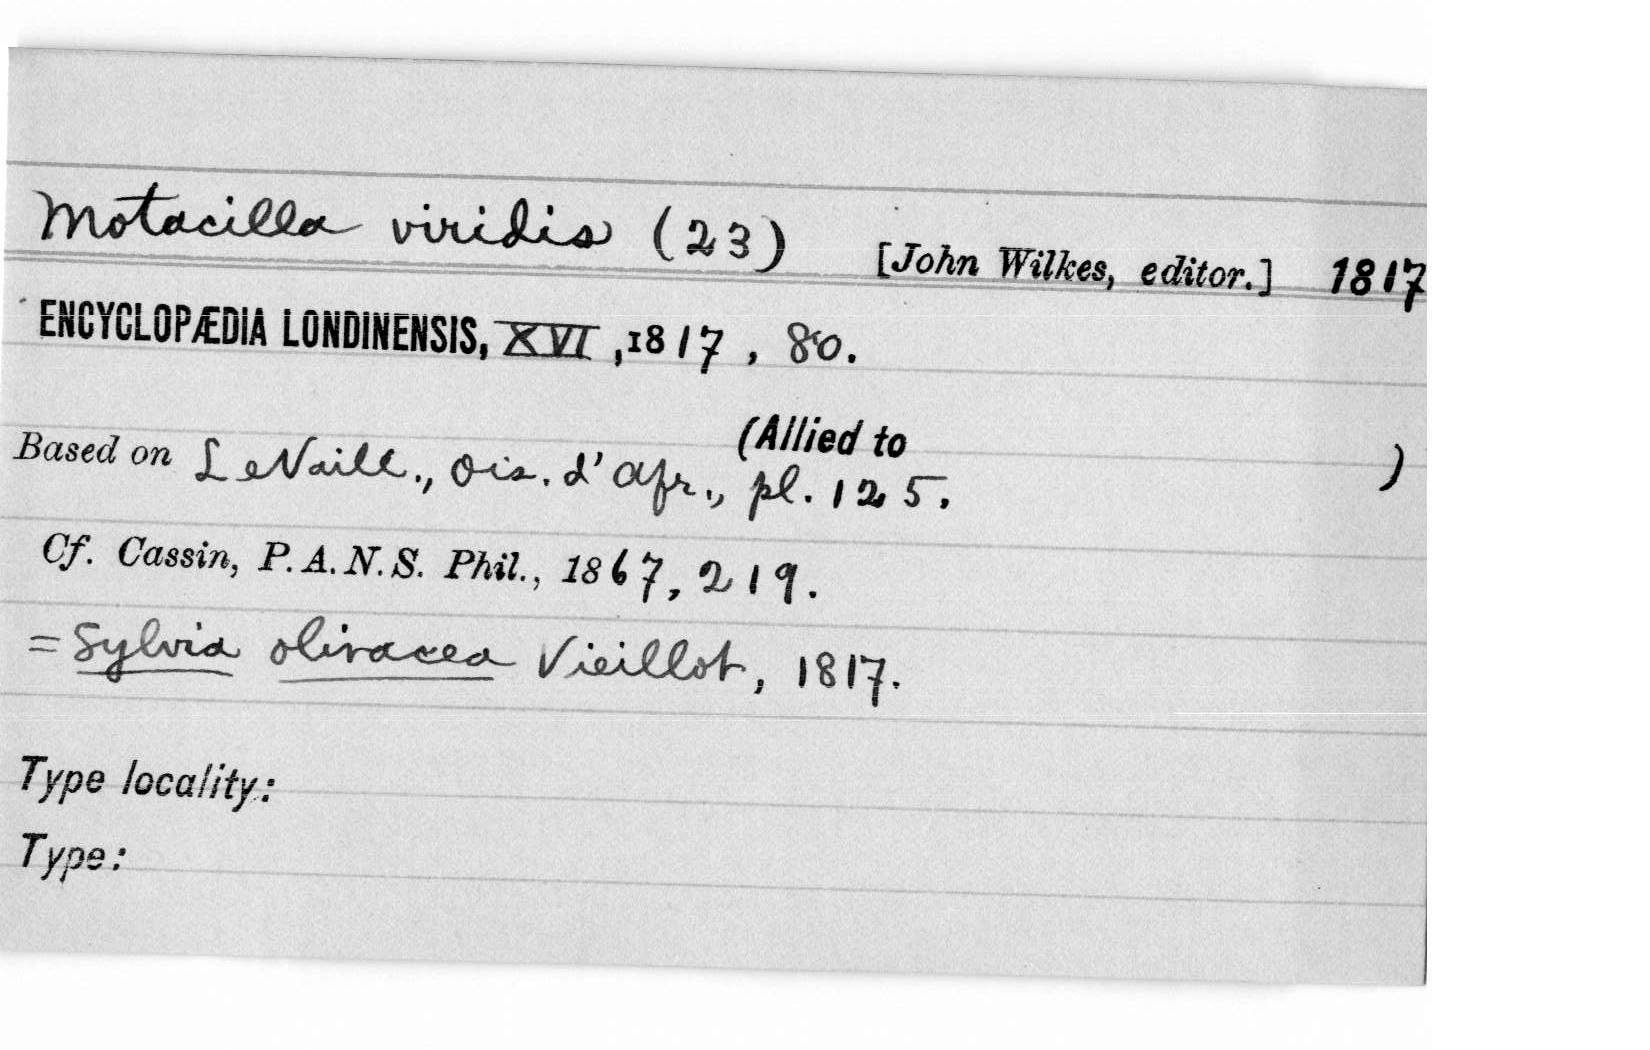 Motacilla viridis (23) [John Wilkes, editor.] 1817
ENCYCLOPÆDIA LONDINENSIS, XVI, 1817, 80.
(Allied to )
Based on LeVaill., Ois. d'Afr., pl. 125.
Cf. Cassin, P.A.N.S. Phil., 1867, 219.
= Sylvia olivacea Vieillot, 1817.
Type locality:
Type: